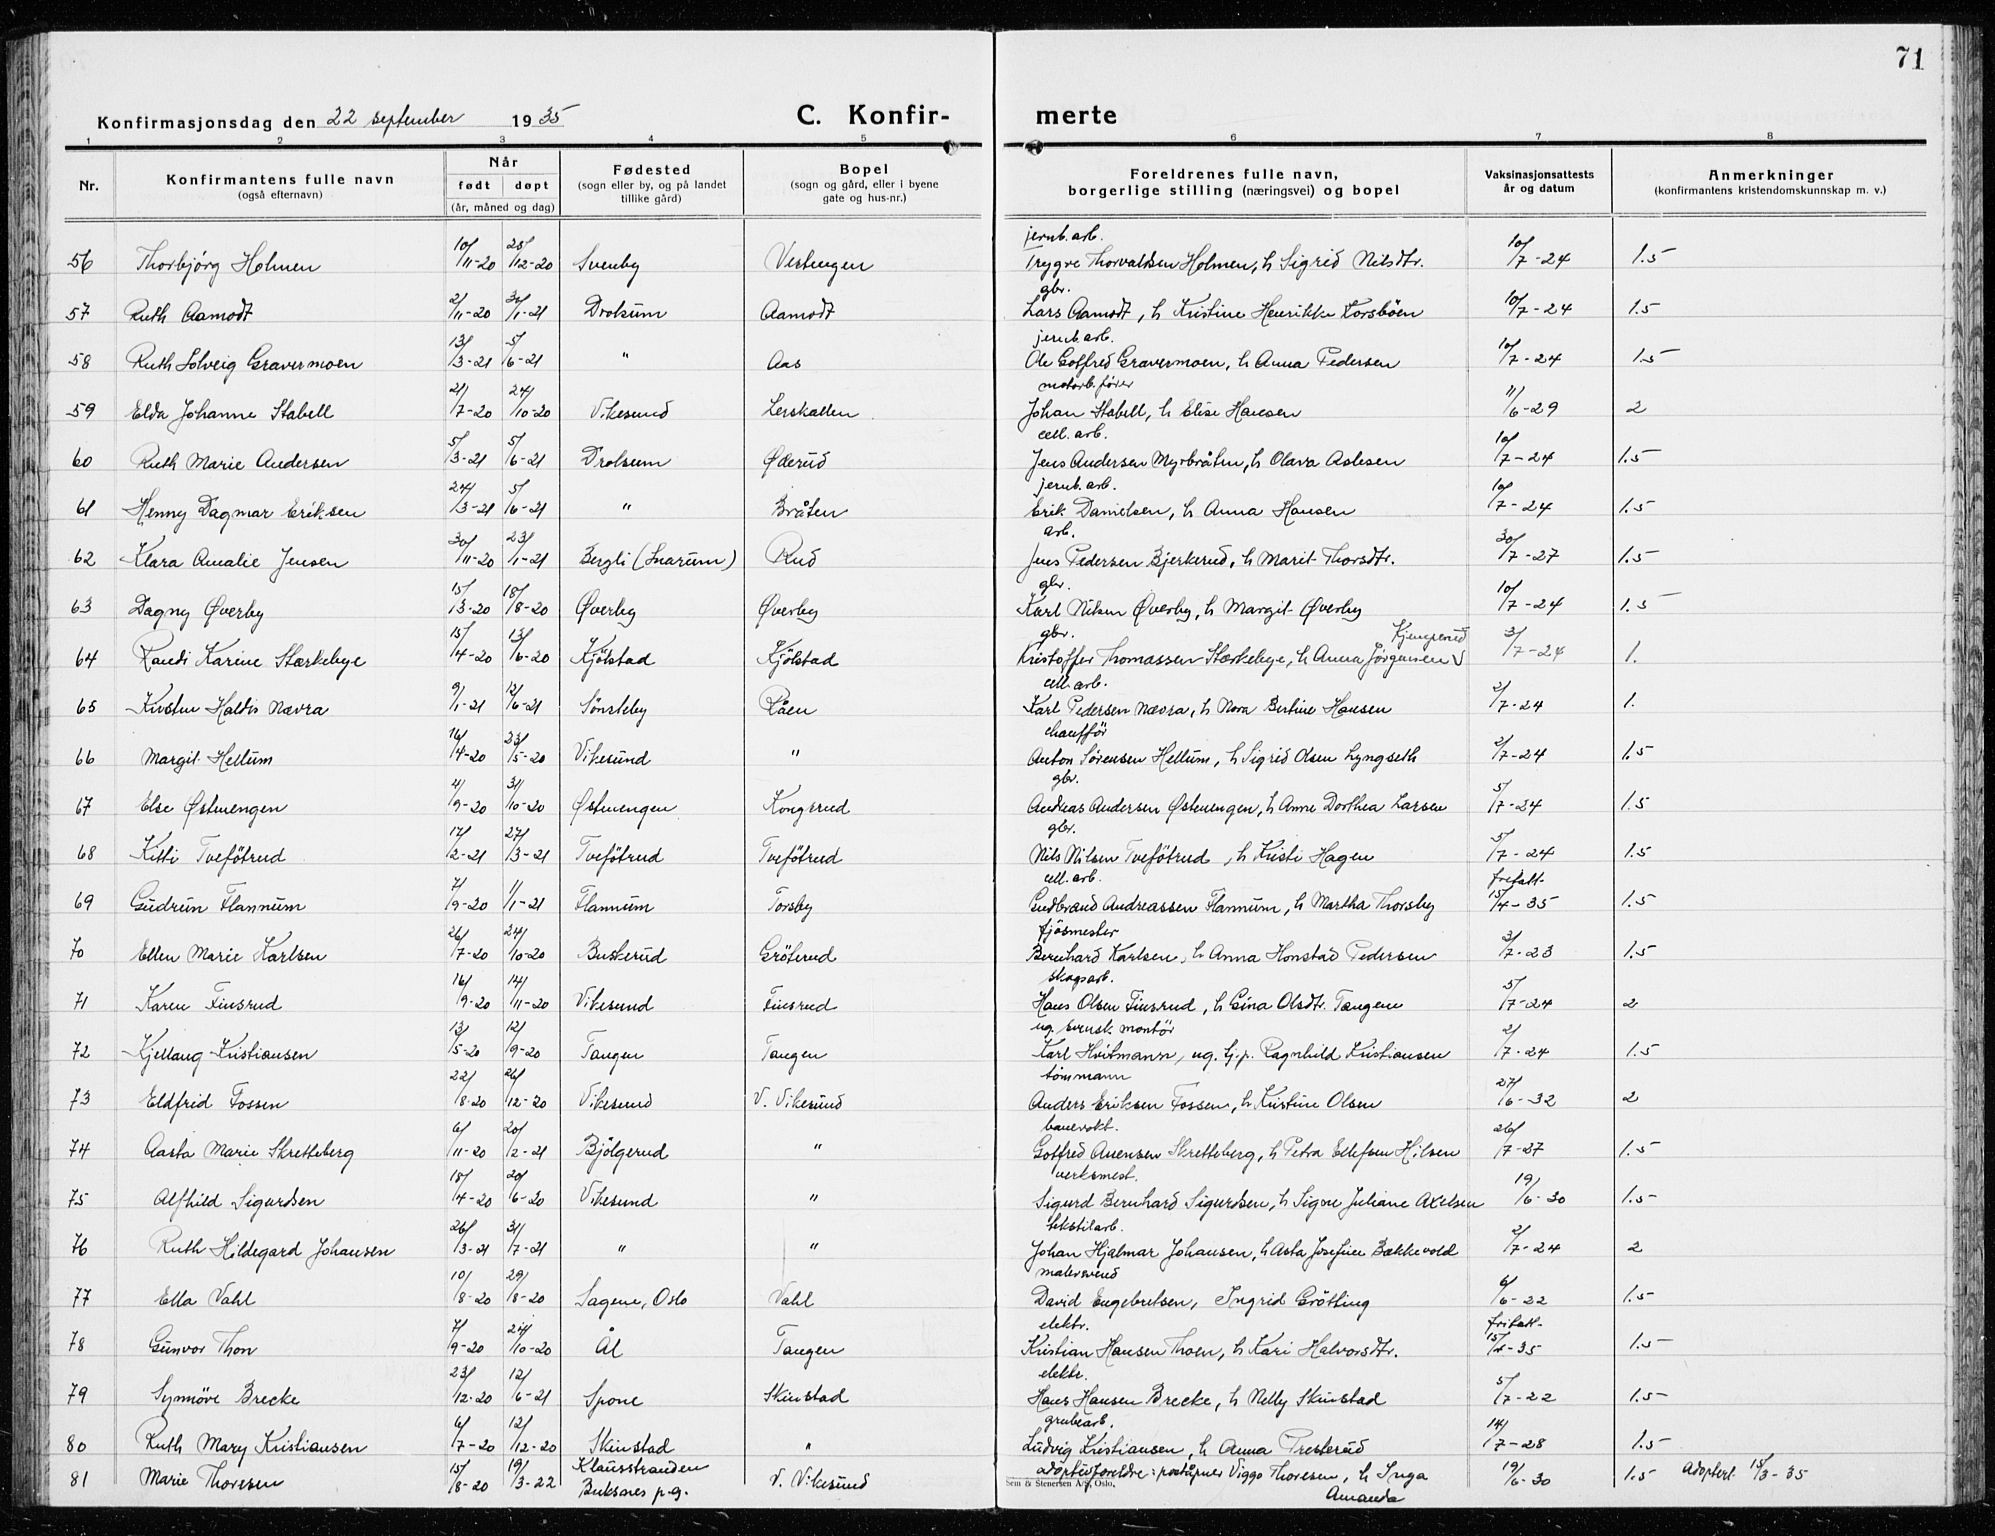 71
Konfirmasjonsdag den 22 september 1935 C. Konfir- merte
1 2 3 4 5 6 7 8
Nr. Konfirmantens fulle navn (også efternavn) Når født døpt (år, måned og dag) Fødested (sogn eller by, og på landet tillike gård) Bopel (sogn og gård, eller i byene gate og hus-nr.) Foreldrenes fulle navn, borgerlige stilling (næringsvei) og bopel Vaksinasjonsattests år og datum Anmerkninger (konfirmantens kristendomskunnskap m. v.)
jernb. arb.
56 Thorbjörg Holmen 10/11-20 28/12-20 Svenby Vestengen Trygve Thorvaldsen Holmen, h Sigrid Nilsdtr. 10/7-24 1.5
gbr.
57 Ruth Aamodt 2/11-20 30/1-21 Drolsum Aamodt Lars Aamodt, h Kristine Henrikke Korsböen 10/7-24 1.5
jernb. arb.
58 Ruth Solveig Gravermoen 13/3-21 5/6-21 " Aas Ole Gotfred Gravermoen, h Anna Pedersen 10/7-24 1.5
motorb. fører
59 Elda Johanne Stabell 21/7-20 24/10-20 Vikesund Lerskallen Johan Stabell, h Elise Hansen 11/6-29 2
cell. arb.
60 Ruth Marie Andersen 5/3-21 5/6-21 Drolsum Øderud Jens Andersen Myrbråten, h Olava Aslesen 10/7-24 1.5
jernb. arb.
61 Henny Dagmar Eriksen 24/3-21 5/6-21 " Bråten Erik Danielsen, h Anna Hansen 10/7-24 1.5
arb.
62 Klara Amalie Jensen 30/11-20 23/1-21 Bergli (Snarum) Rud Jens Pedersen Bjerkerud, h Marit Thorsdtr. 30/7-27 1.5
gbr.
63 Dagny Øverby 15/3-20 18/8-20 Øverby Øverby Karl Nilsen Øverby, h Margit Øverby 10/7-24 1.5
gbr. Kjengerud
64 Randi Karine Stærkebye 15/4-20 13/6-20 Kjölstad Kjölstad Kristoffer Thomassen Stærkebye, h Anna Jörgensen 3/7-24 1.
cell. arb.
65 Kirsten Haldis Nævra 9/1-21 12/6-21 Sönsteby Råen Karl Pedersen Nævra, h Nora Bertine Hansen 2/7-24 1.
chaufför
66 Margit Hellum 16/4-20 23/5-20 Vikesund " Anton Sörensen Hellum, h Sigrid Olsen Lyngseth 2/7-24 1.5
gbr.
67 Else Østmengen 4/9-20 31/10-20 Østmengen Kongsrud Andreas Andersen Østmengen, h Anne Dorthea Larsen 5/7-24 1.5
gbr.
68 Kitti Tvefötrud 17/2-21 27/3-21 Tvefötrud Tvefötrud Nils Nilsen Tvefötrud, h Kristi Hagen 5/7-24 1.5
cell. arb. fritatt
69 Gudrun Flannum 7/9-20 1/1-21 Flannum Torsby Gudbrand Andreassen Flannum, h Martha Thorsby 15/4-35 1.5
fjösmester
70 Ellen Marie Karlsen 26/7-20 24/10-20 Buskerud Gröterud Bernhard Karlsen, h Anna Honstad Pedersen 3/7-23 1.5
skogsarb.
71 Karen Finsrud 16/9-20 14/11-20 Vikesund Finsrud Hans Olsen Finsrud, h Gina Olsdtr. Tangen 5/7-24 2
ug. svensk montör
72 Kjellaug Kristiansen 13/5-20 12/9-20 Tangen Tangen Karl Hvitmann, ug. tj.p. Ragnhild Kristiansen 2/7-24 1.5
tömmann
73 Eldfrid Fossen 22/8-20 26/12-20 Vikesund V. Vikesund Anders Eriksen Fossen, h Kristine Olsen 27/6-32 2
banevokt.
74 Aasta Marie Skretteberg 6/11-20 20/2-21 Bjölgerud " Gotfred Auensen Skretteberg, h Petra Ellefsen Hilsen 26/7-27 1.5
verksmest.
75 Alfhild Sigurdsen 15/4-20 20/6-20 Vikesund " Sigurd Bernhard Sigurdsen, h Signe Juliane Axelsen 19/6-30 1.5
tekstilarb.
76 Ruth Hildegard Johansen 26/3-21 31/7-21 " " Johan Hjalmar Johansen, h Asta Josefine Bækkevold 2/7-24 2
malersvend
77 Ella Vahl 10/8-20 29/8-20 Sagene, Oslo Vahl David Engebretsen, Ingrid Grötting 6/6-22 1.5
elektr. fritatt
78 Gunvor Thon 7/9-20 24/10-20 Ål Tangen Kristian Hansen Thoen, h Kari Halvorsdtr. 15/4-35 1.5
elektr.
79 Synnöve Brecke 23/12-20 12/6-21 Spone Skinstad Hans Hansen Brecke, h Nelly Skinstad 5/7-22 1.5
grubearb.
80 Ruth Mary Kristiansen 6/7-20 12/12-20 Skinstad " Ludvig Kristiansen, h Anna Presterud 14/7-28 1.5
81 Marie Thoresen 15/8-20 19/3-22 Klausstranden Buksnes p.g. V. Vikesund adoptivforeldre: poståpner Viggo Thoresen, h Inga Amanda 19/6-30 1.5 adoptert 15/3-35
Sem & Stenersen A/S, Oslo.